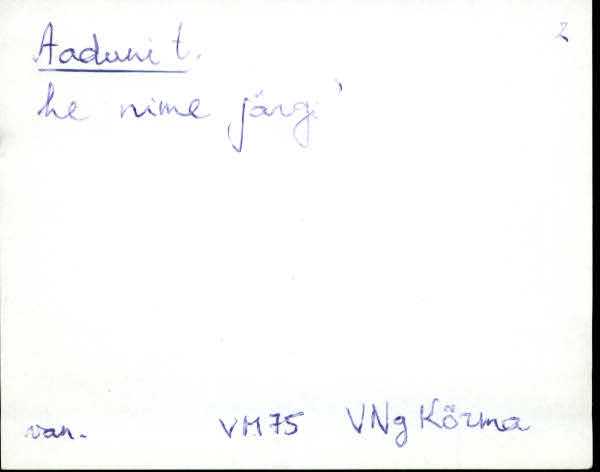 2
Aaduni t.
he nime järgi
van. VM75 VNg Kõrma